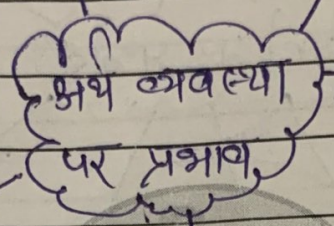 अर्थ व्यवस्था
पर प्रभाव